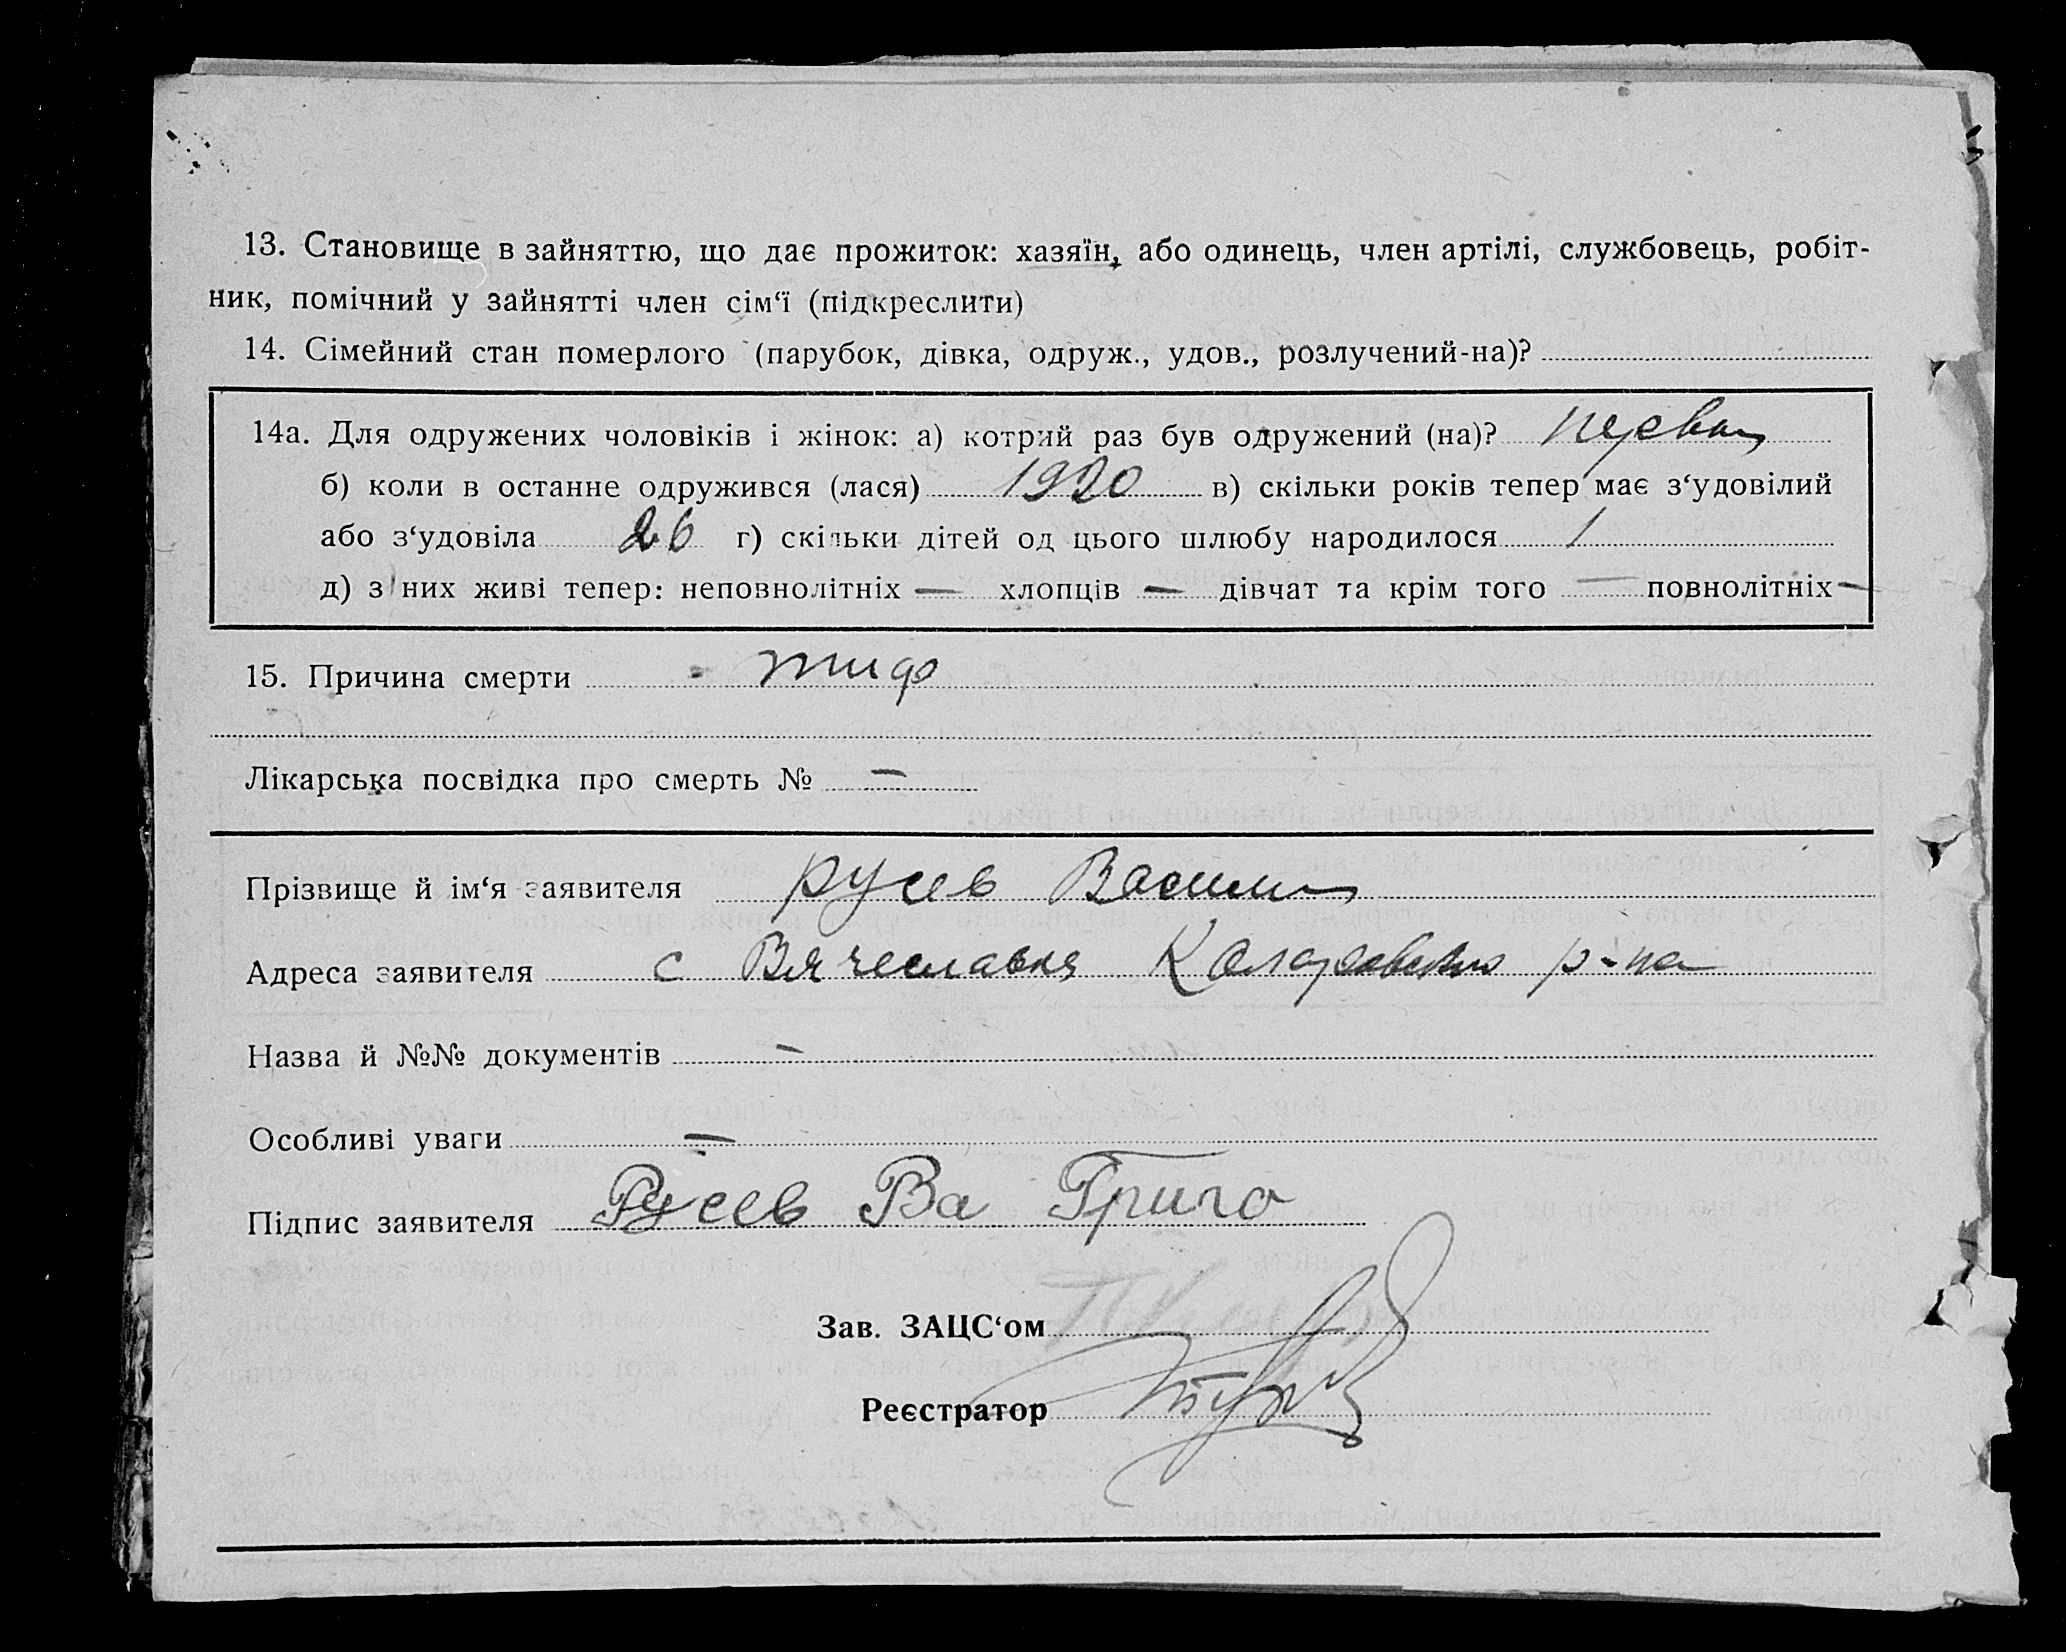 13. Становище в зайняттю, що дає прожиток: хазяїн, або одинець, член артілі, службовець, робіт-
ник, помічний у зайнятті член сім‘ї (підкреслити)
14. Сімейний стан померлого (парубок, дівка, одруж., удов., розлучений-на)?
14а. Для одружених чоловіків і жінок: а) котрий раз був одружений (на)? первый
б) коли в останне одружився (лася) 1920 в) скільки років тепер має з‘удовілий
або з‘удовіла 26 г) скільки дітей од цього шлюбу народилося 1
д) з них живі тепер: неповнолітніх — хлопців — дівчат та крім того — повнолітніх —
15. Причина смерти тиф
Лікарська посвідка про смерть № —
Прізвище й ім‘я заявителя Русев Василий
Адреса заявителя с Вячеславка Коларовского р-на
Назва й №№ документів —
Особливі уваги —
Підпис заявителя Русев Ва Григо
Зав. ЗАЦС‘ом
Реєстратор